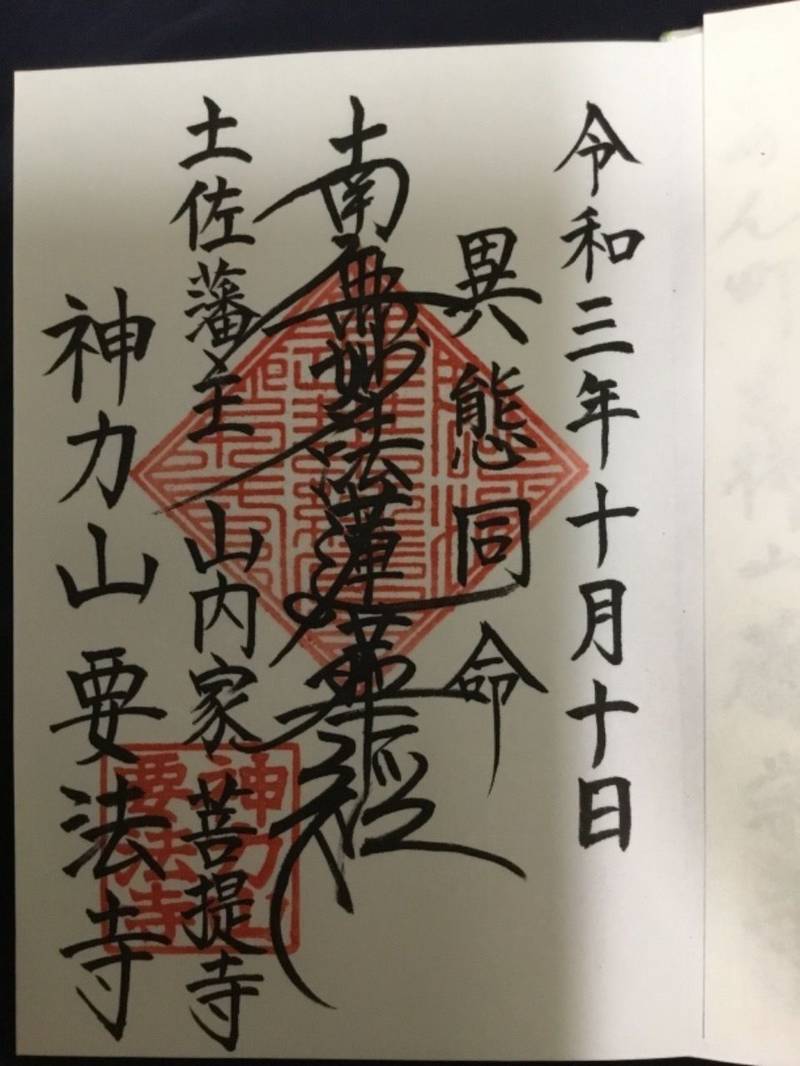 令和三年十月十日
異態同命
南無妙法蓮華経
土佐藩主 山内家菩提寺
神力山要法寺
神力山
要法寺